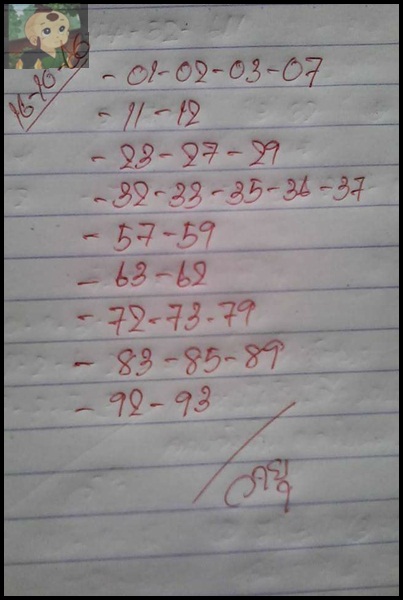 - 01-02-03-07
- 11-12
- 23-27-29
- 32-33-35-36-37
- 57-59
- 63-62
- 72-73-79
- 83-85-89
- 92-93